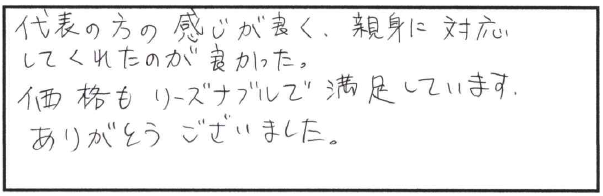 代表の方の感じが良く、親身に対応
してくれたのが良かった。
価格もリーズナブルで満足しています.
ありがとうございました。